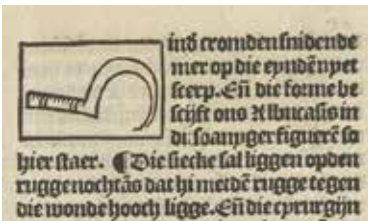 ind cromden snidende
mer op die eyndēn yet
scerp. Eñ die forme be
scijft ons Albucasis in
di: soanyger figuerē so
hier staet. ¶ Die siecke sal liggen op den
rugge nochtās dat hi metdē rugge tegen
die wonde hooch ligge. Eñ die cyrurgijn